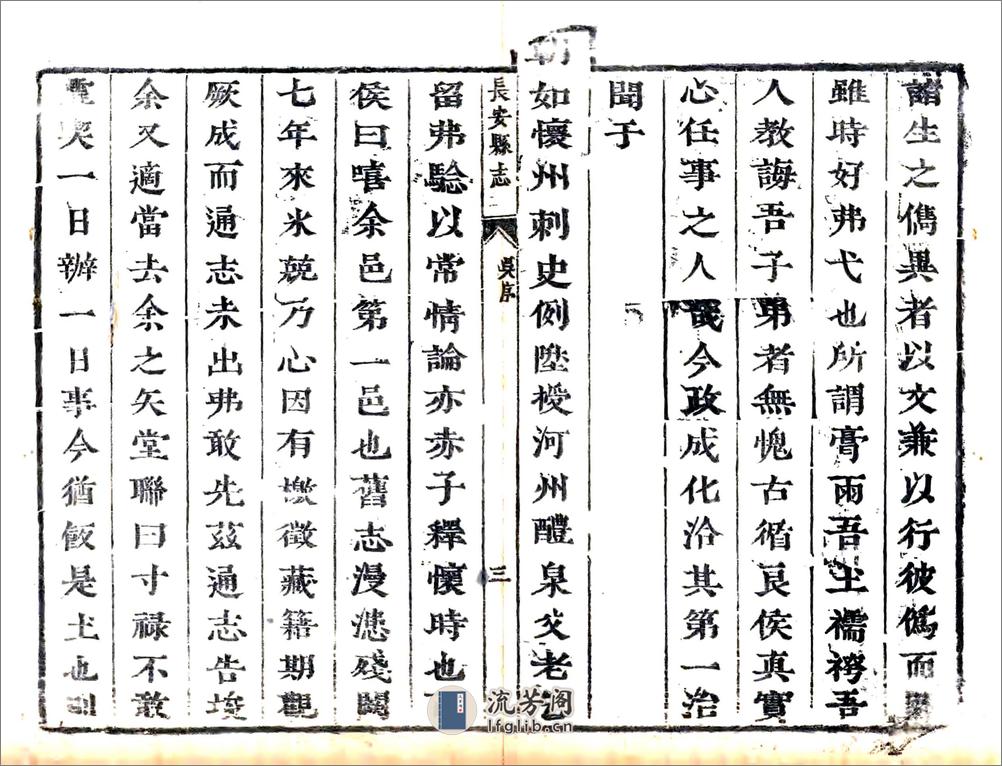 諸生之儁異者以文兼以行彼僞而
雖時好弗弋也所謂膏雨吾土襦袴吾
人教誨吾子弟者無愧古循良侯真實
心任事之人哉今政成化洽其第一治
聞于
朝如懷州刺史例陞授河州醴泉父老乞
長安縣志 吳序 三
留弗騐以常情論亦赤子釋懷時也
侯曰嘻余邑第一邑也舊志漫漶殘闕
七年來氷兢乃心因有檄徵藏籍期觀
厥成而通志未出弗敢先茲通志告竣
余又適當去余之矢堂聯曰寸祿不敢
一日辦一日事今猶飯是土也則
流芳阁
lfglib.cn